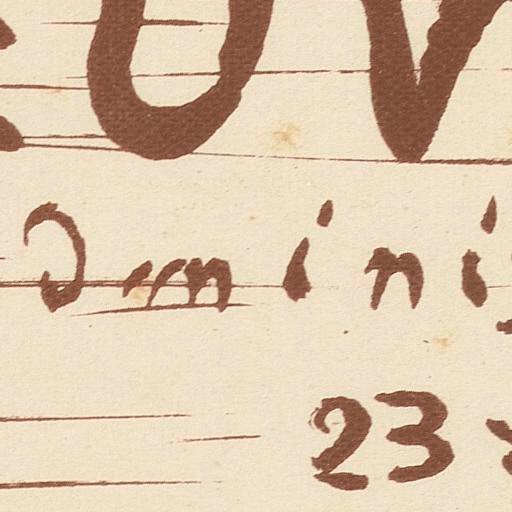 OV
Domini
23